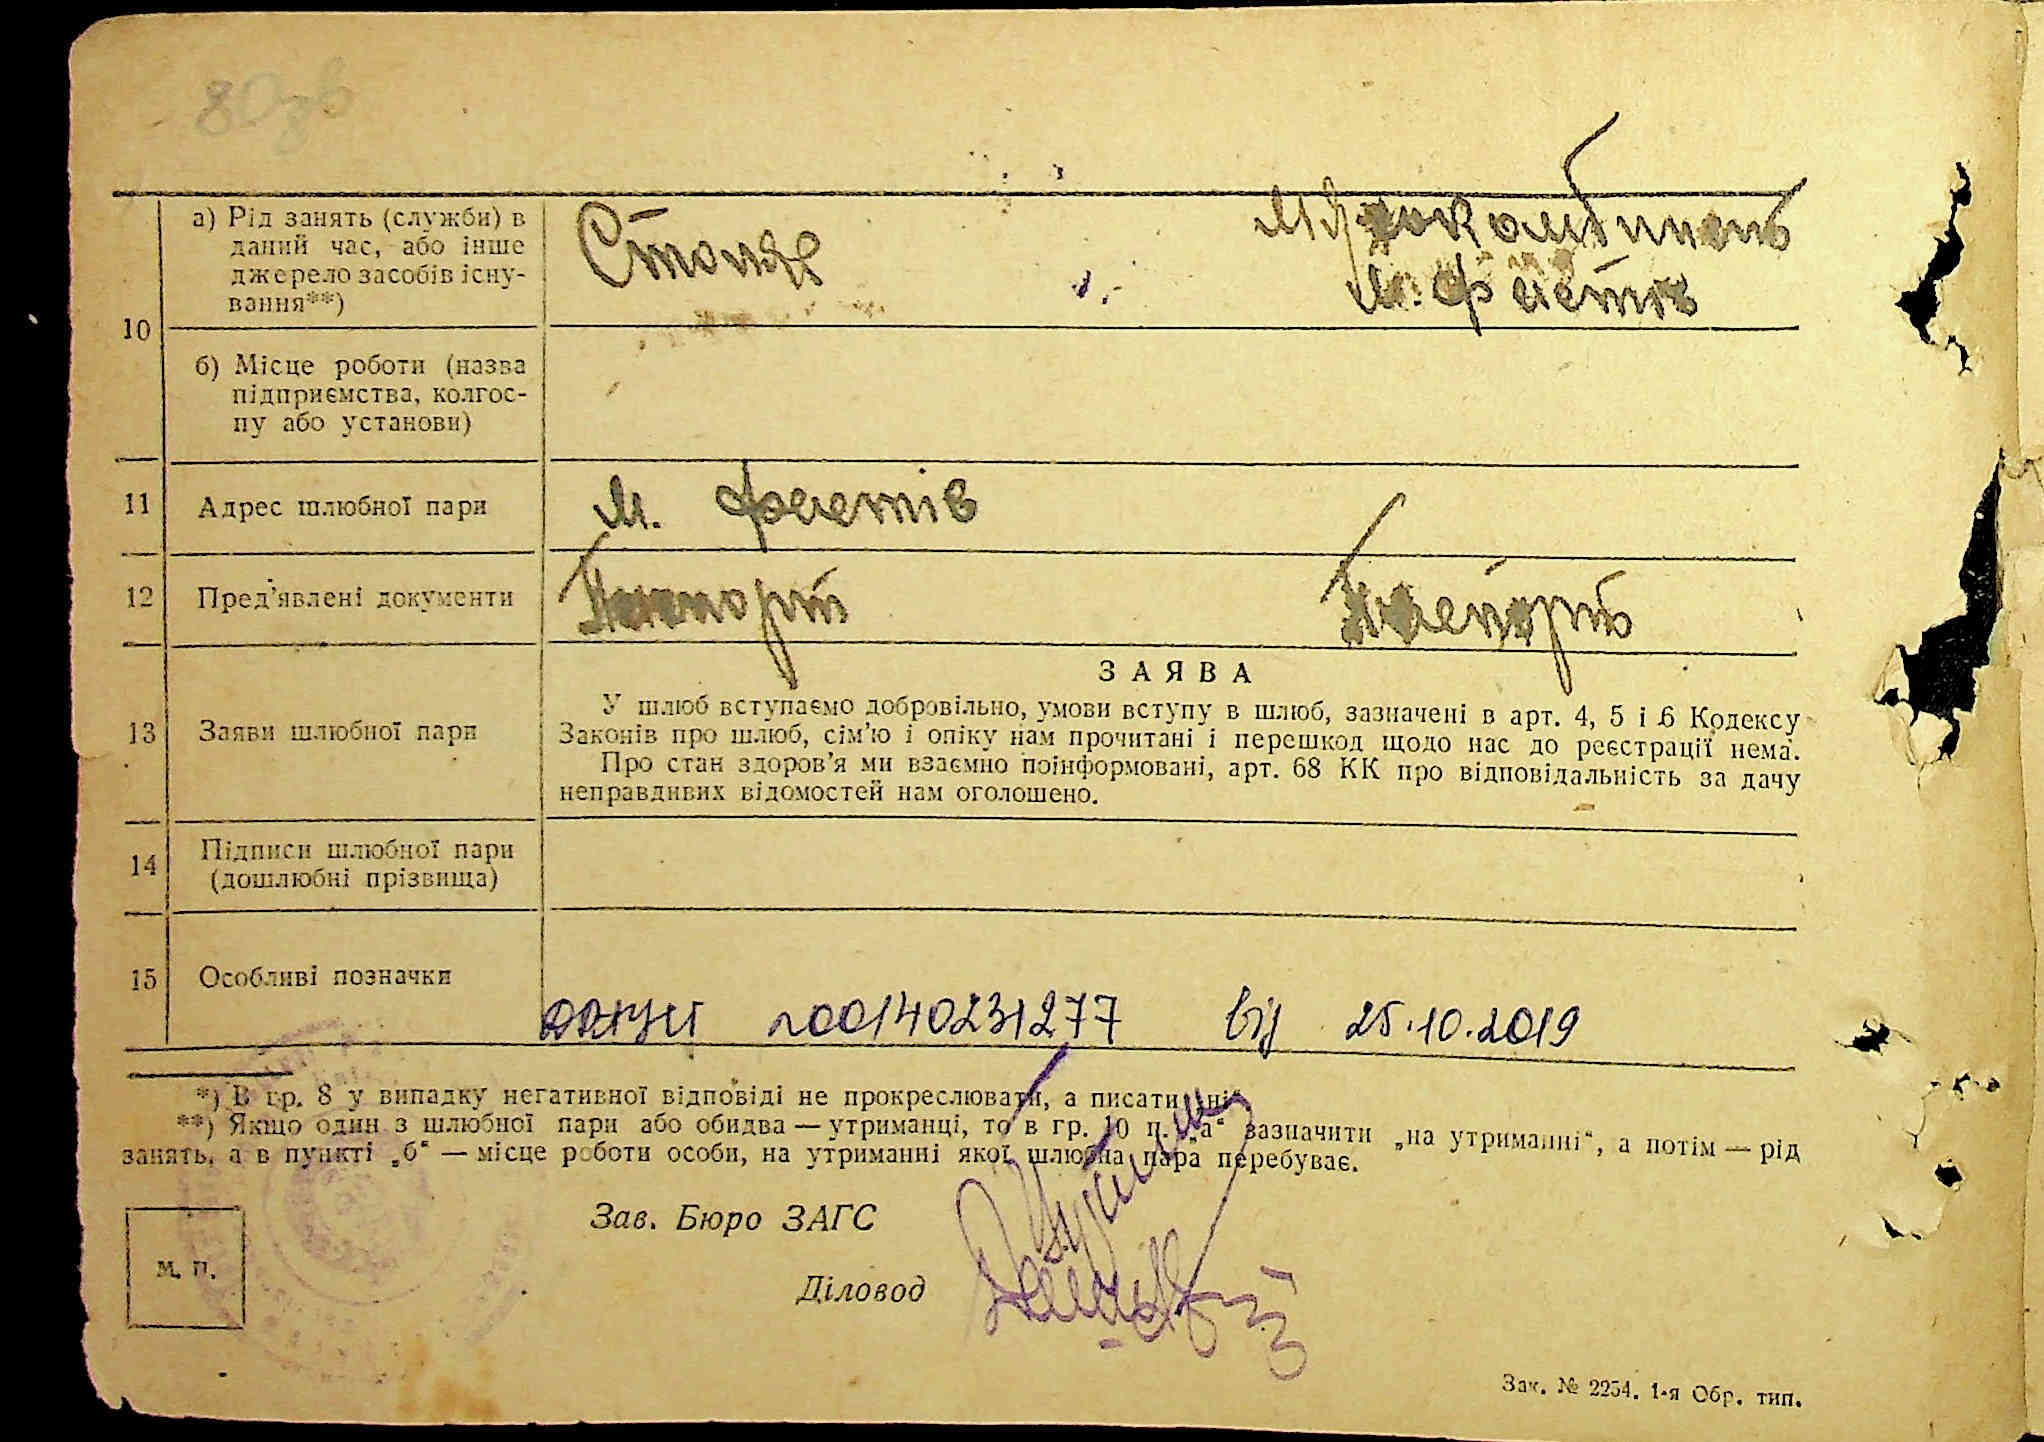 80зв
а) Рід занять (служби) в
даний час, або інше
джерело засобів існу-
вання**)
Столяр
м. Фастів
10
б) Місце роботи (назва
підприємства, колгос-
пу або установи)
11 Адрес шлюбної пари м. Фастів
12 Пред'явлені документи Паспорт Паспорт
ЗАЯВА
13 Заяви шлюбної пари
У шлюб вступаємо добровільно, умови вступу в шлюб, зазначені в арт. 4, 5 і 6 Кодексу
Законів про шлюб, сім'ю і опіку нам прочитані і перешкод щодо нас до реєстрації нема.
Про стан здоров'я ми взаємно поінформовані, арт. 68 КК про відповідальність за дачу
неправдивих відомостей нам оголошено.
14 Підписи шлюбної пари
(дошлюбні прізвища)
15 Особливі позначки
№00140231277 від 25.10.2019
*) В гр. 8 у випадку негативної відповіді не прокреслювати, а писати „ні“
**) Якщо один з шлюбної пари або обидва — утриманці, то в гр. 10 п. „а“ зазначити „на утриманні“, а потім — рід
занять, а в пункті „б“ — місце роботи особи, на утриманні якої шлюбна пара перебуває.
Зав. Бюро ЗАГС
М. П.
Діловод
Зак. № 2254. 1-я Обр. тип.